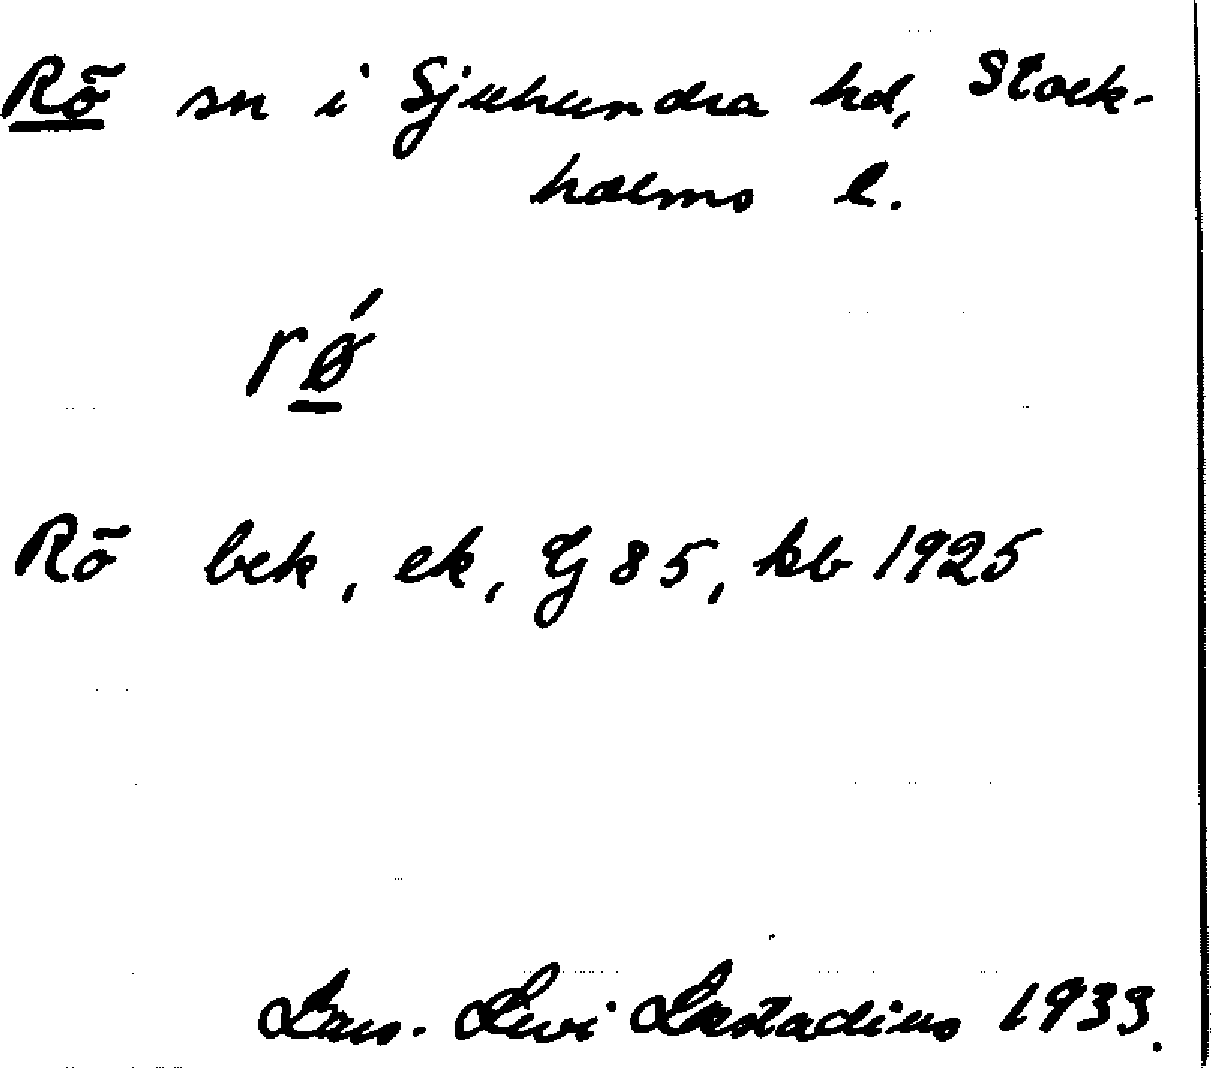 Rö sn i Sjuhundra hd, Stock-
holms l.
rǿ
Rö bek, ek, Gj 85, kb 1925
Lars-Levi Læstadius 1933.